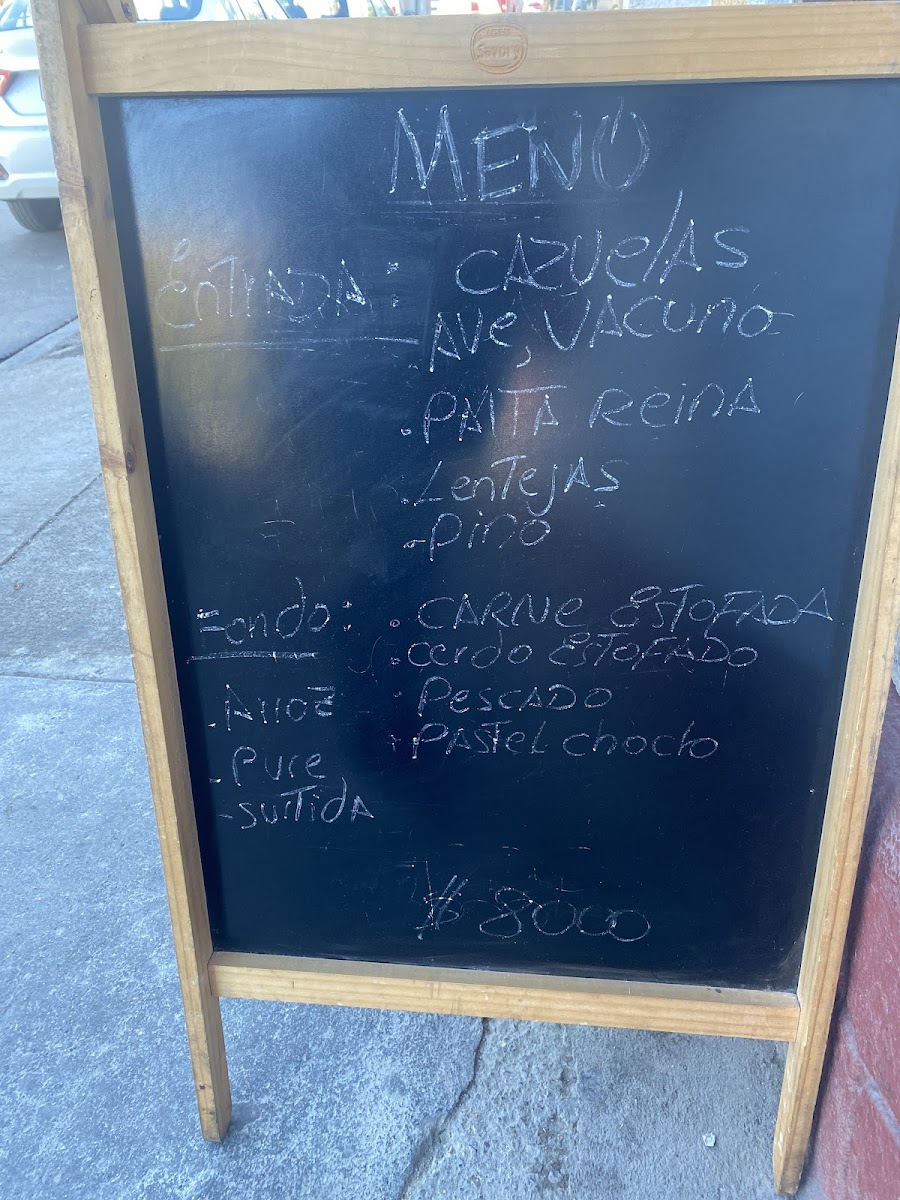 Savory
MENÚ
Entrada: CAZUelAS
.AVe, VACUno
.PALTA Reina
.LenTejAS
-pino
Fondo: .CARNe ESTOFADA
.cerdo ESTOFADO
.Arroz .PESCADO
.PASTeL choclo
-Pure
-surtida
$ 8000